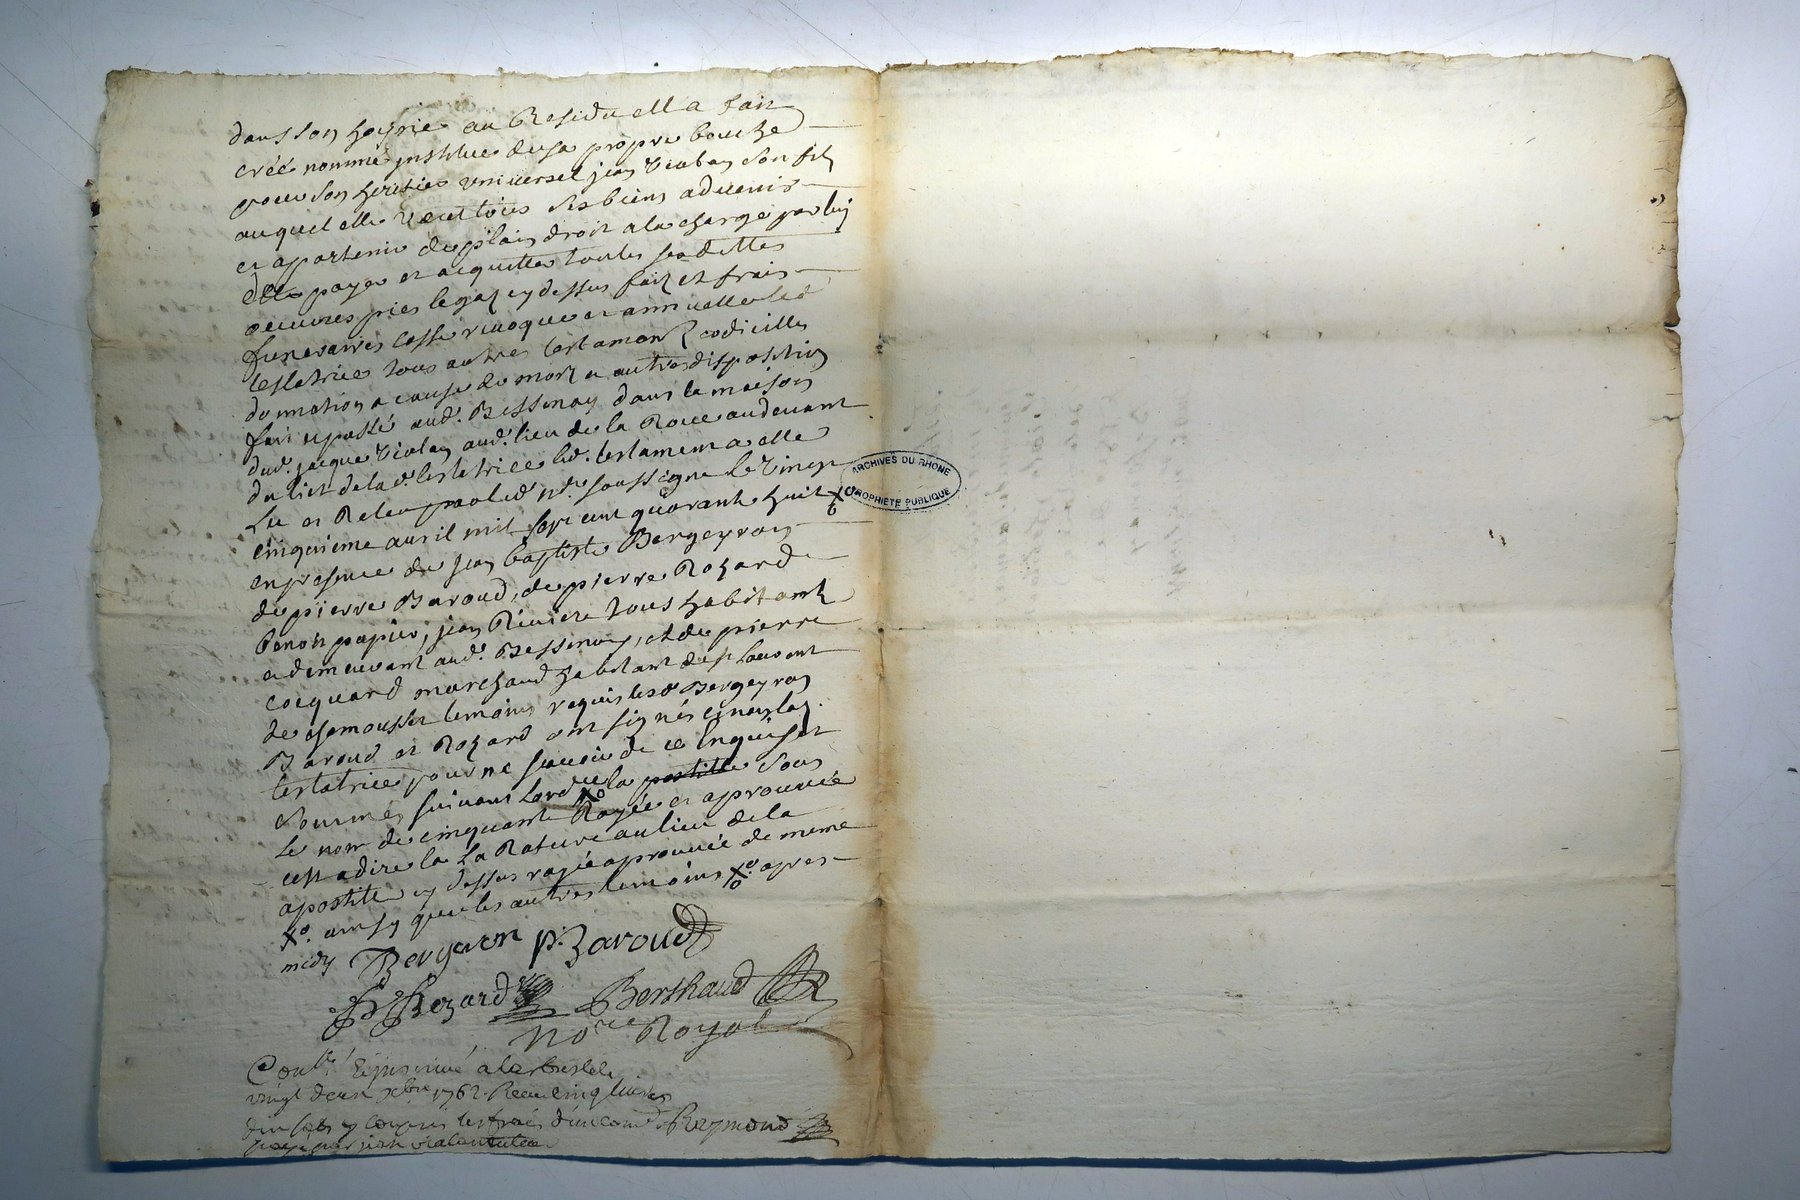 dans son hoyrie au Residu ella fait
créé nommé institue de sa propre bouche
pour son heritier universel jean Vialan son fils
auquel elle veut tous ses biens advenir
et apartenir de plain droit ala charge par luy
de payer et acquitter toutes ses dettes
oeuvres pies legaz cy dessus fait et frais
funeraires casse revoque et annulle lad
testatrice tous autres testamant codicilles
donnation a cause de mort et autres disposition
fait et passé aud. Bessenay dans la maison
dud. jacque Vialan aud. lieu de la Roue audevant
du lict de lad. testatrice led. testament a elle
Lu et Releu par led. nre. soussigné le Vingt
cinquieme avril mil sept cent quarante huit X
en presence de jean baptiste Bergeyron
de pierre Baroud, de pierre Rozard
benoit papier, jean Riviere tous habitants
et demeurant aud. Bessenay, et de pierre
cocquard marchand habitant de st Laurent
de chamousset temoins requis lesd Bergeyron
Baroud et Rozard ont signés et non lad.
testatrice pour ne sçavoir de ce Enquise et
sommés suivant Lord la postille sous
Le nom de cinquante Rayée et aprouvée
cest a dire la La Rature au lieu de la
apostille cy dessus rayée aprouvée de meme
Xo. ainsy que les autres temoins Xo. apres
midy Bergeron p. Baroud
P Rozard Berthaud
Nore Royal
Conllé Et insinué a la
vingt deux xbre 1762. Receu cinq livres
dix sols y compris les frais Raymond
payé par jean vialan
ARCHIVES DU RHONE
PROPRIETE PUBLIQUE